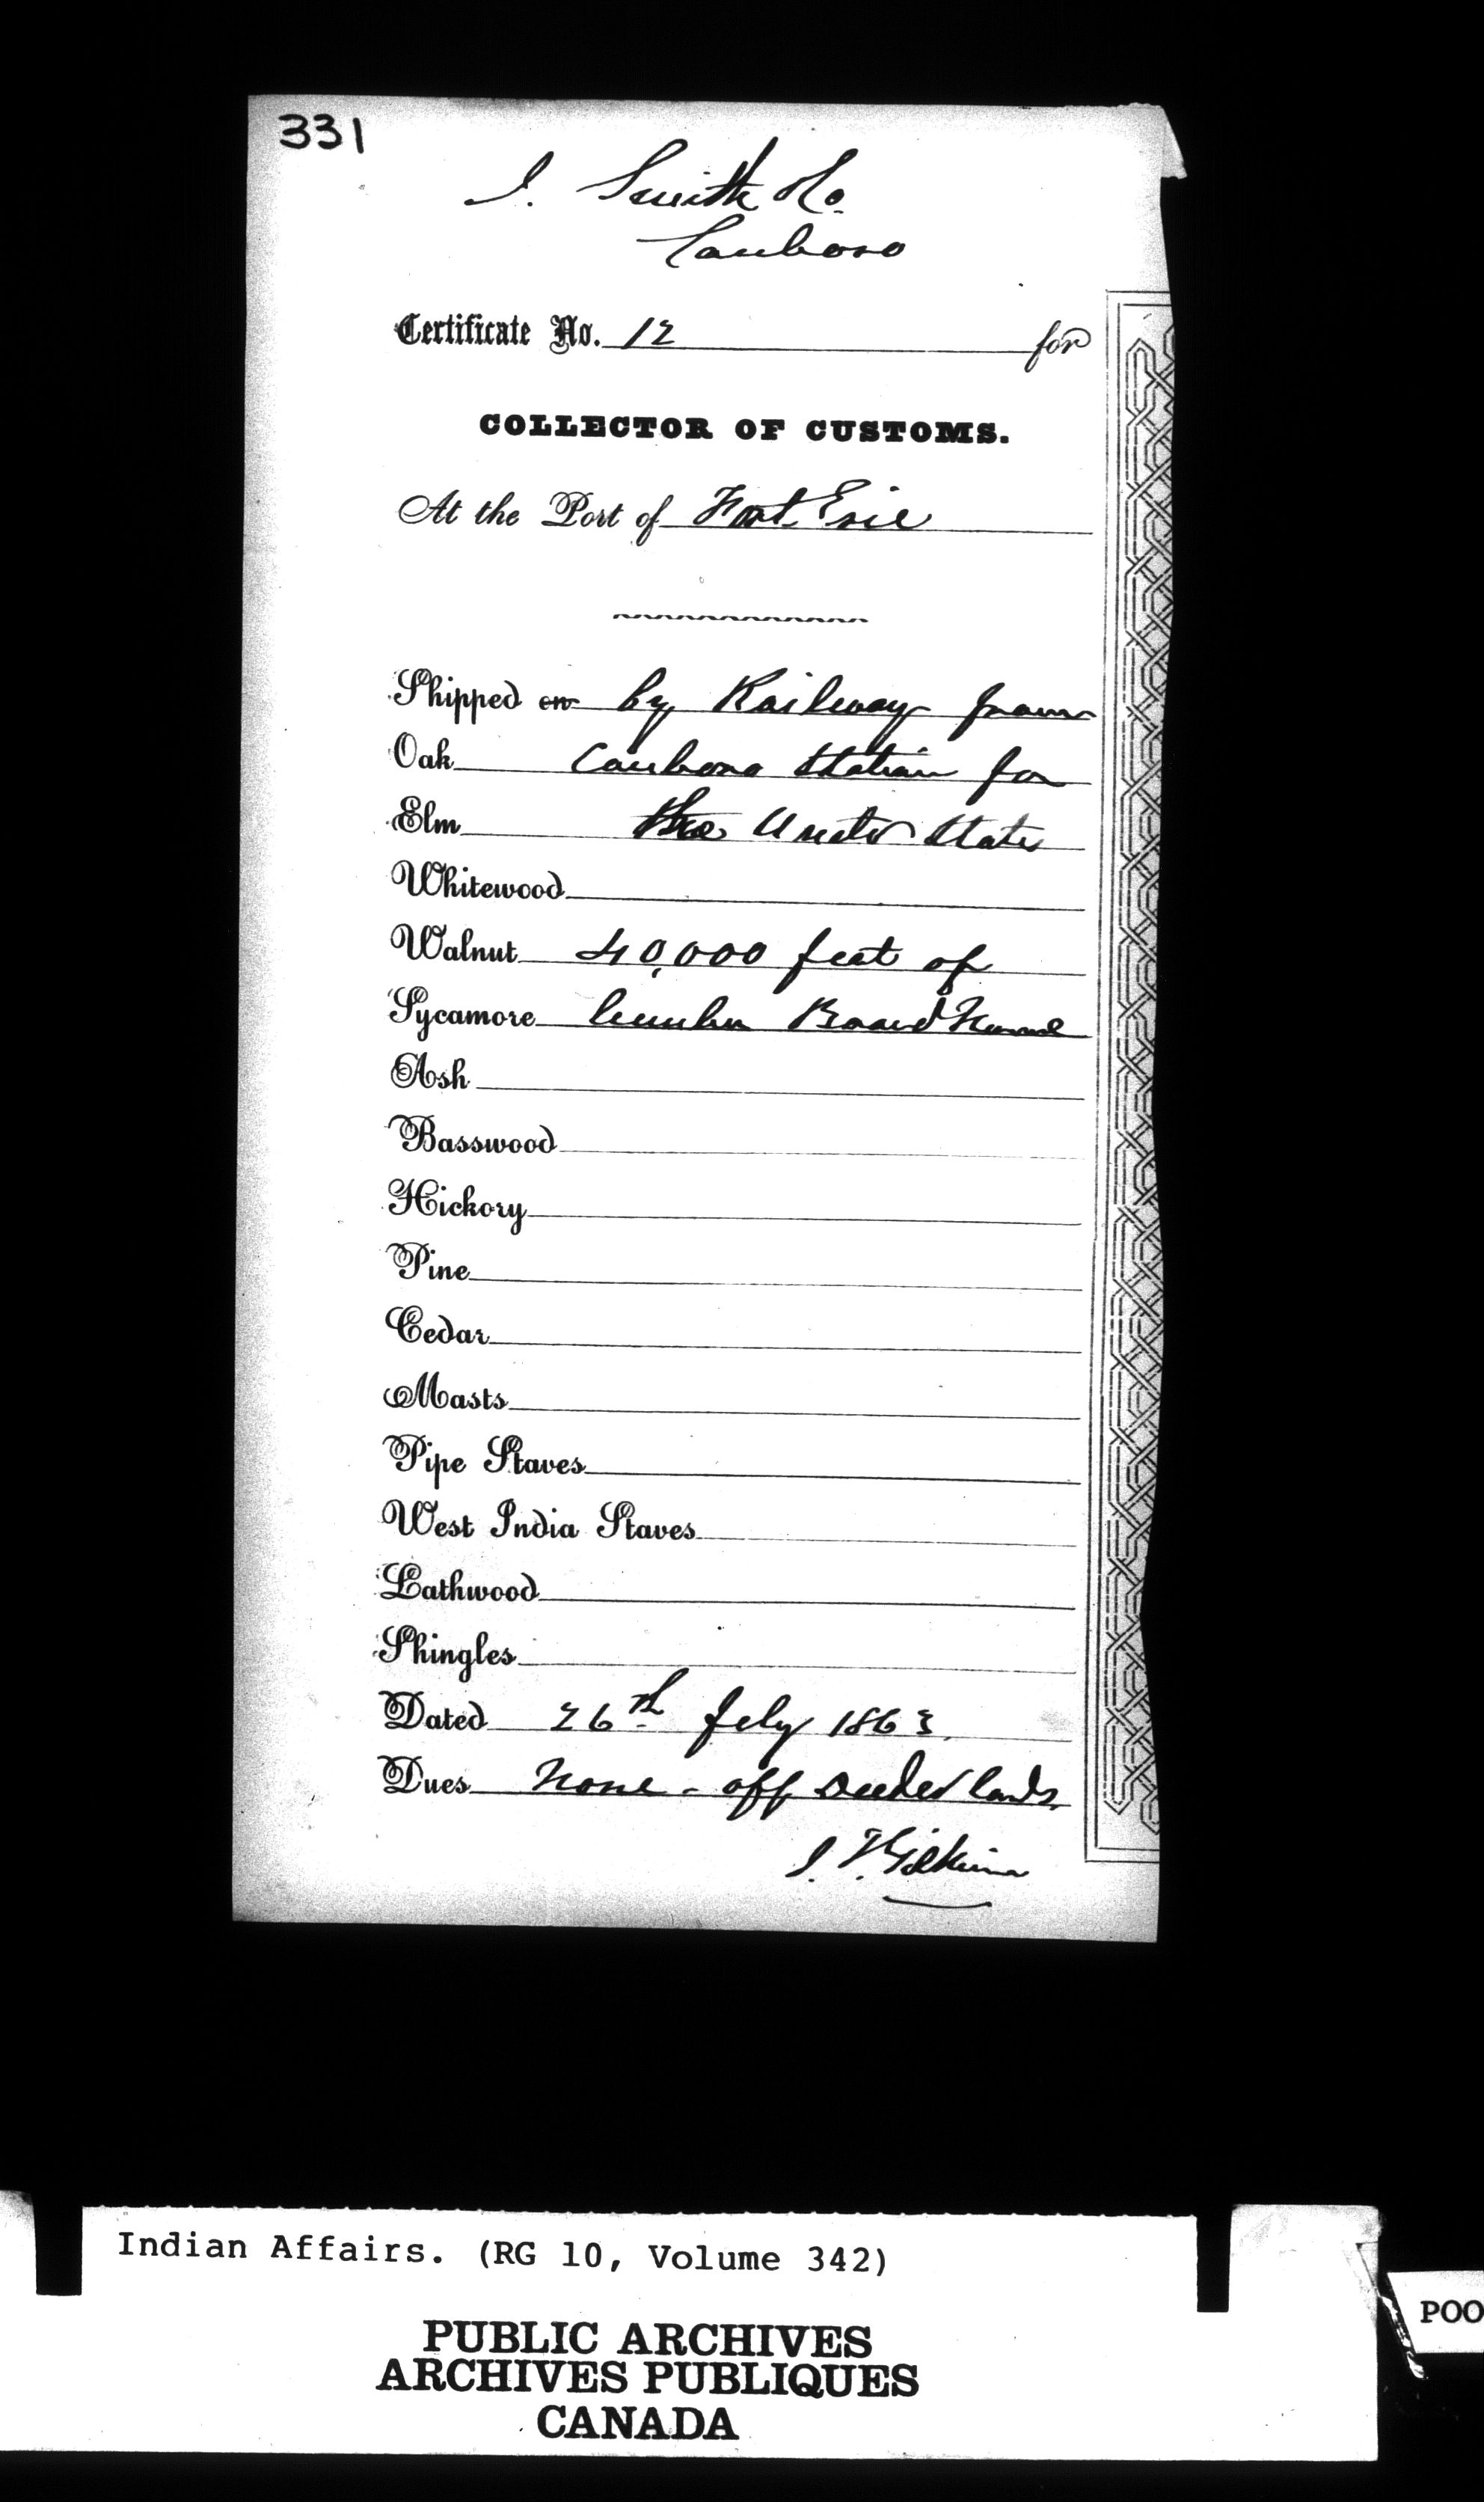 331
I. Smith &Co.
Canboro
Certificate No. 12 for
COLLECTOR OF CUSTOMS.
At the Port of Fort Erie
Shipped on by Railway from
Oak Canboro Station for
Elm the United States
Whitewood
Walnut 40,000 feet of
Sycamore lumber Board
Ash
Basswood
Hickory
Pine
Cedar
Masts
Pipe Staves
West India Staves
Lathwood
Shingles
Dated 26th Feby 1863.
Dues None - off deeded lands.
J. T. Gilkison
Indian Affairs. (RG 10, Volume 342)
PUBLIC ARCHIVES
ARCHIVES PUBLIQUES
CANADA
POO